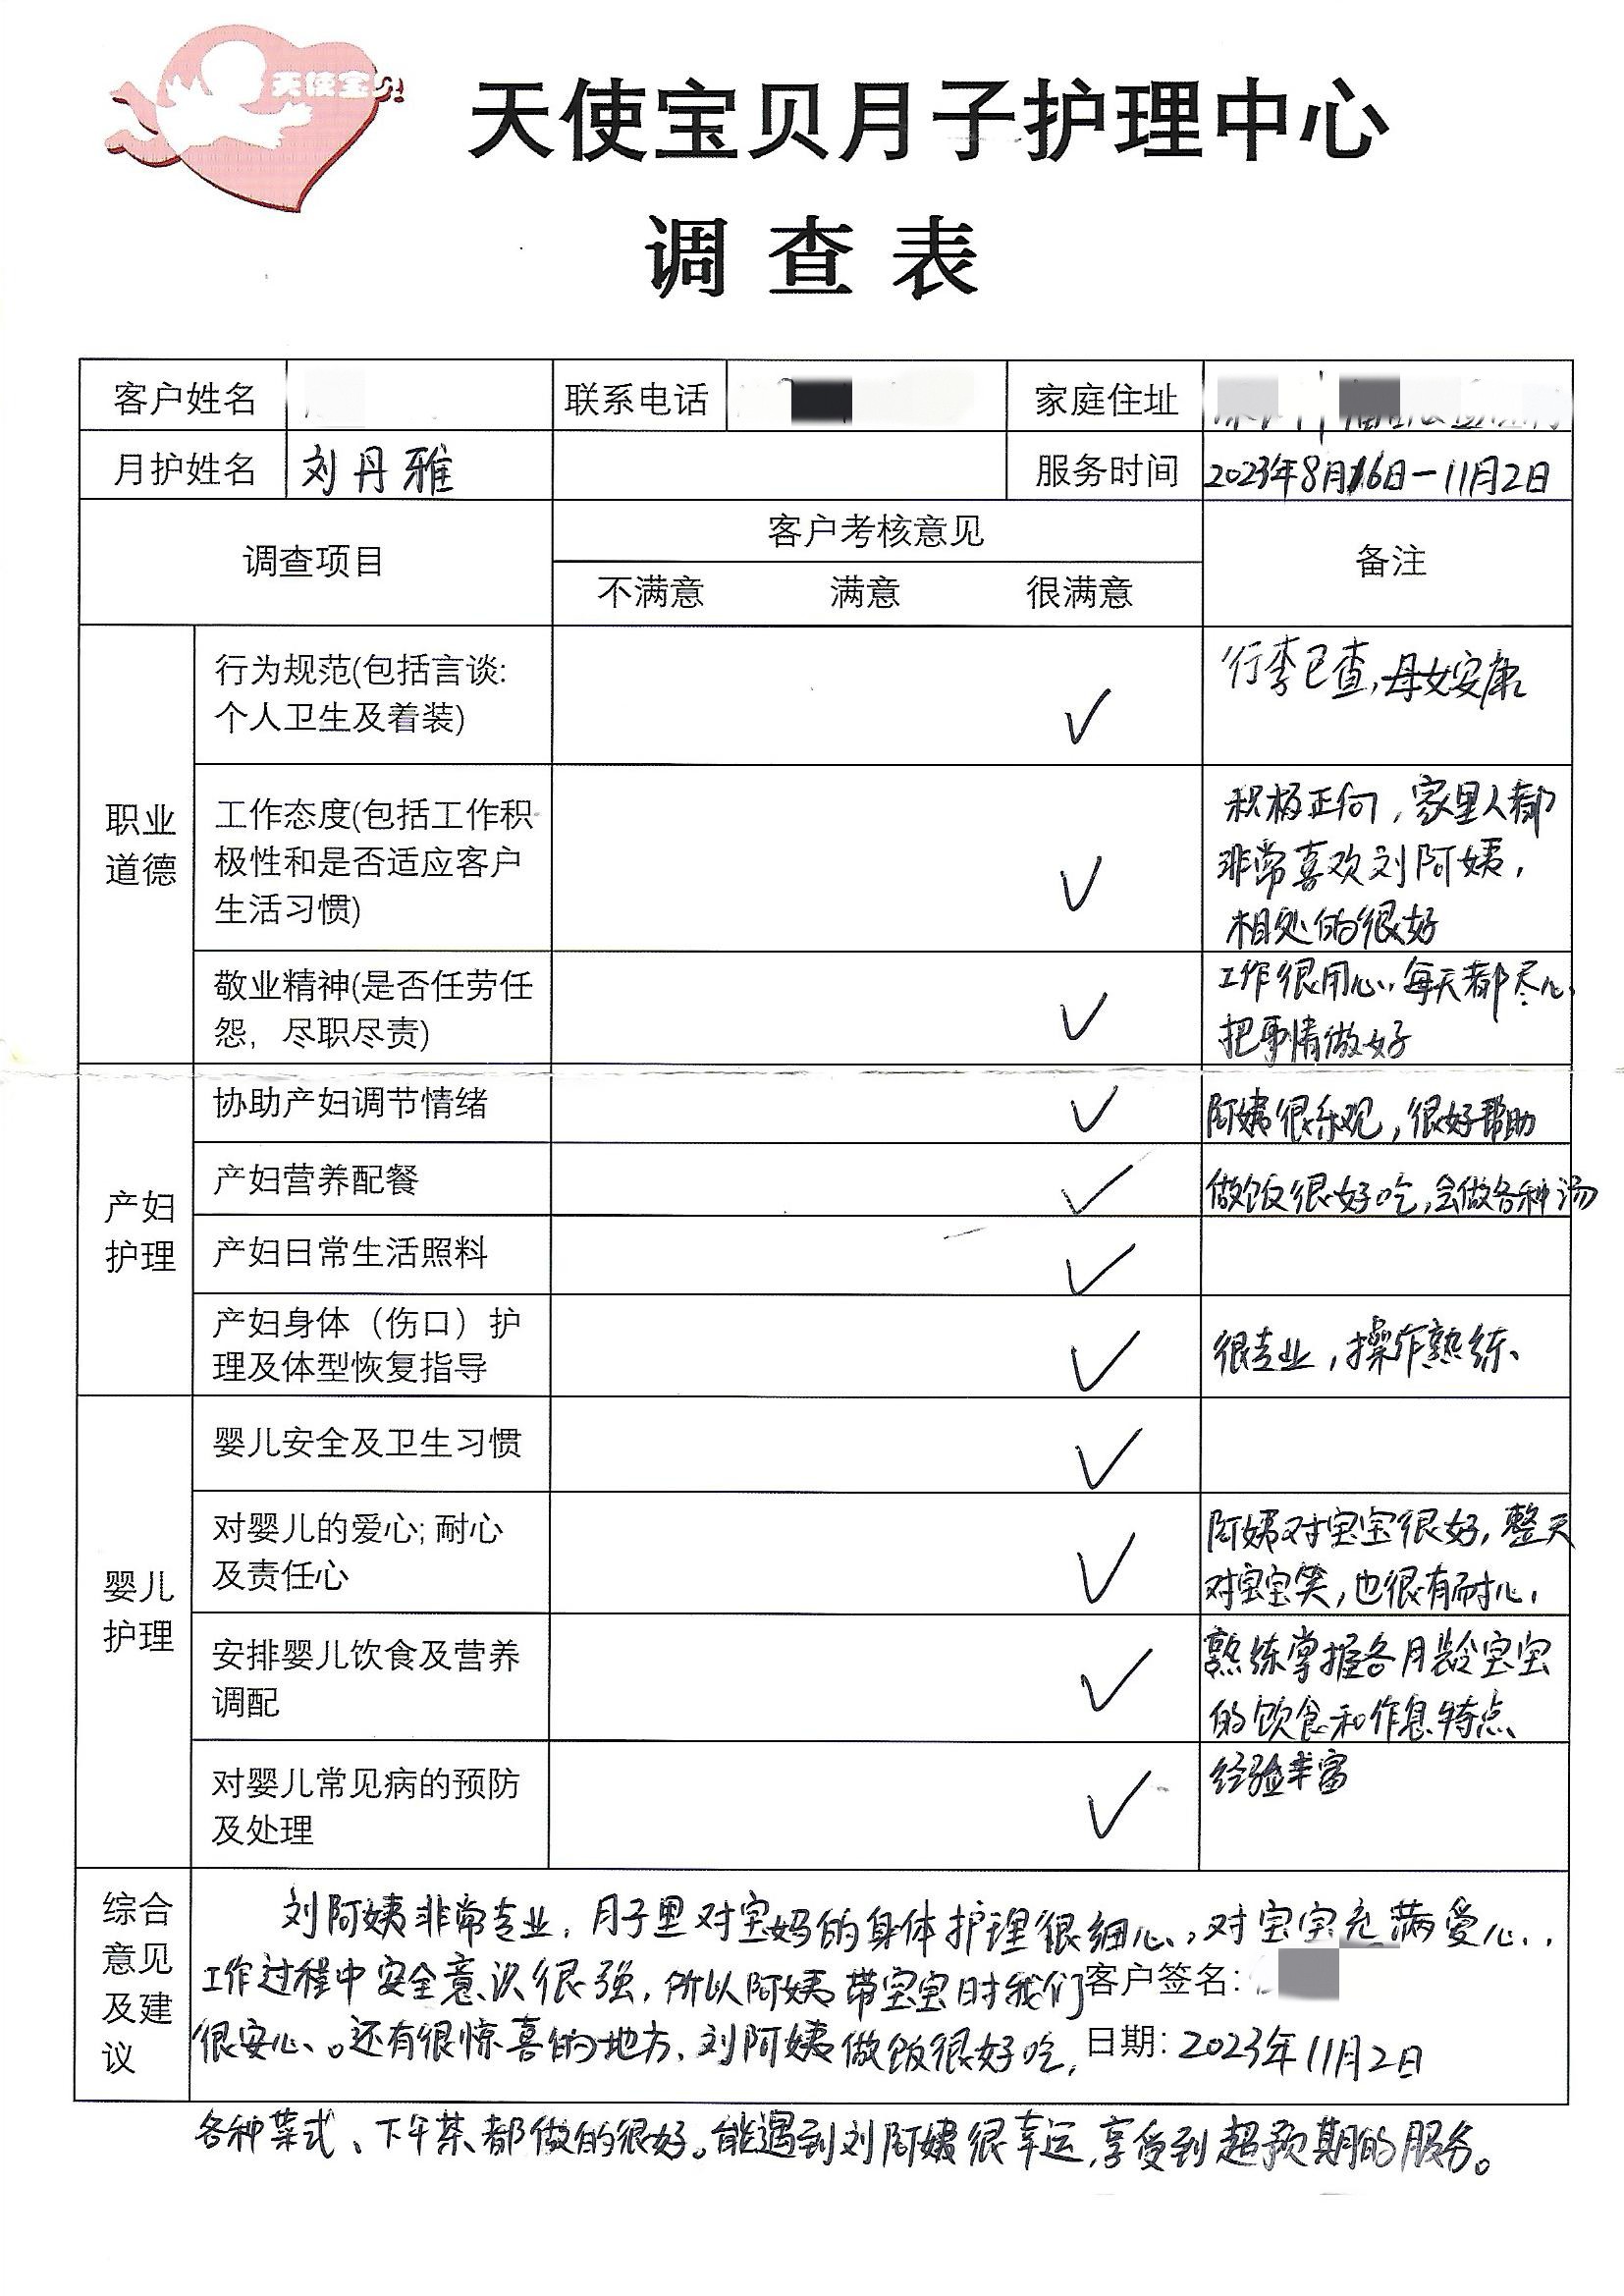 天使宝贝
天使宝贝月子护理中心
调查表
客户姓名 联系电话 家庭住址
月护姓名 刘丹雅 服务时间 2023年8月16日-11月2日
调查项目 客户考核意见 备注
不满意 满意 很满意
职业道德
行为规范(包括言谈:
个人卫生及着装)
✓
行李已查,母女安康
工作态度(包括工作积
极性和是否适应客户
生活习惯)
✓
积极正向,家里人都
非常喜欢刘阿姨,
相处的很好
敬业精神(是否任劳任
怨,尽职尽责)
✓
工作很用心,每天都尽心
把事情做好
产妇护理
协助产妇调节情绪 ✓ 阿姨很乐观,很好帮助
产妇营养配餐 ✓ 做饭很好吃,会做各种汤
产妇日常生活照料 ✓
产妇身体（伤口）护
理及体型恢复指导
✓
很专业,操作熟练、
婴儿护理
婴儿安全及卫生习惯 ✓
对婴儿的爱心;耐心
及责任心
✓
阿姨对宝宝很好,整天
对宝宝笑,也很有耐心,
安排婴儿饮食及营养
调配
✓
熟练掌握各月龄宝宝
的饮食和作息特点
对婴儿常见病的预防
及处理
✓
经验丰富
综合
意见
及建
议
刘阿姨非常专业,月子里对宝妈的身体护理很细心,对宝宝充满爱心,
工作过程中安全意识很强,所以阿姨带宝宝时我们
客户签名:
很安心。还有很惊喜的地方,刘阿姨做饭很好吃,
日期: 2023年11月2日
各种菜式、下午茶都做的很好。能遇到刘阿姨很幸运,享受到超预期的服务。